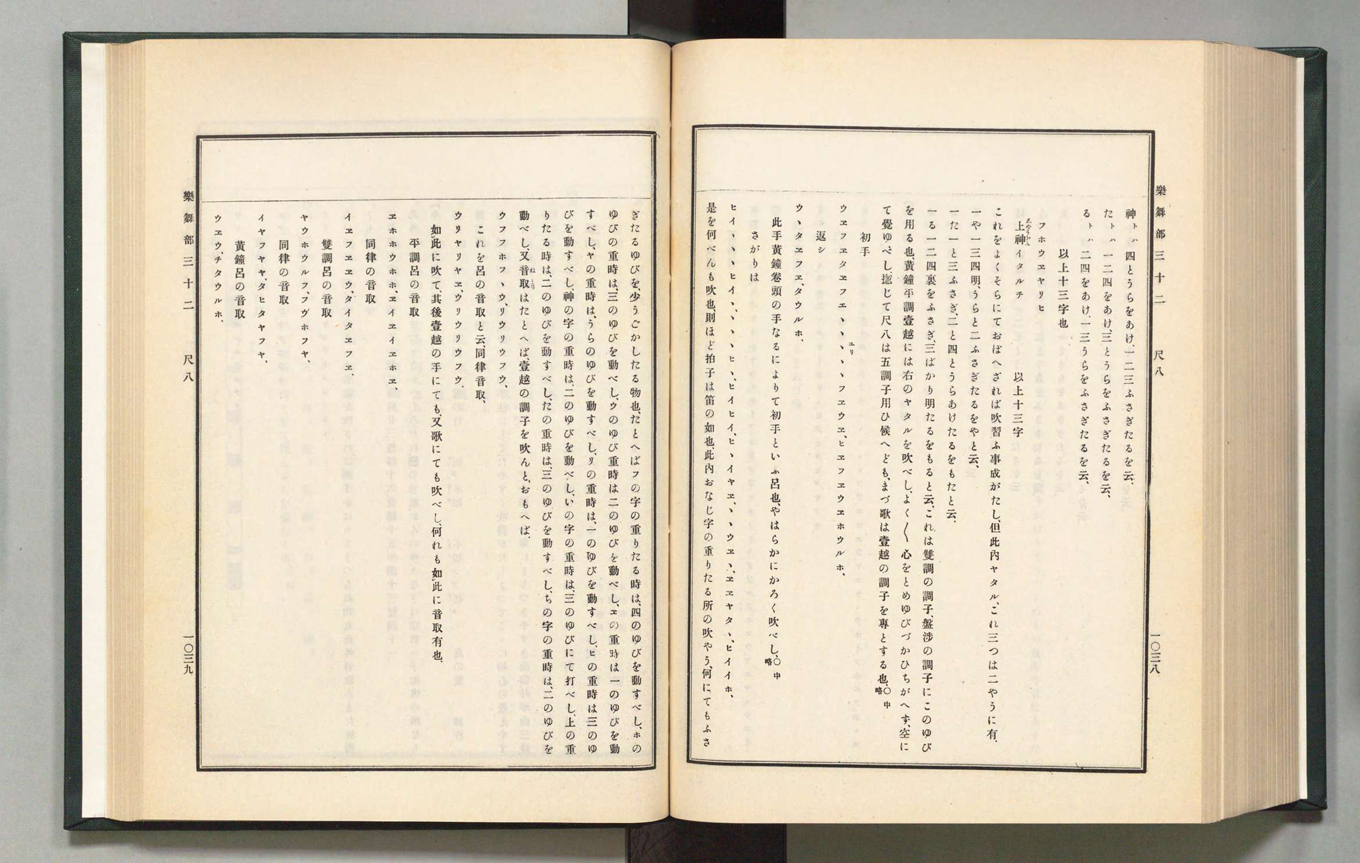 樂舞部三十二 尺八
一〇三八
神ト云、四とうらをあけ、一二三ふさぎたるを云、
たト云、一二四をあけ、三とうらをふさぎたるを云、
るト云、二四をあけ、一三うらをふさぎたるを云、
以上十三字也
フホウヱヤリヒ
上神イタルチ 以上十三字
これをよくそらにておぼへざれば吹習ふ事成がたし、但此内ヤタル、これ三つは二やうに有、
一や一三四明、うらと二ふさぎたるをやと云、
一た一と三ふさぎ、二と四とうらあけたるをもたと云、
一る一二四裏をふさぎ、三ばかり明たるをもると云、これは雙調の調子、盤渉の調子にこのゆび
を用る也、黄鐘平調壹越には右のヤタルを吹べし、よく〱心をとめゆびづかひちがへず、空に
て覺ゆべし、惣じて尺八は五調子用ひ候へども、まづ歌は壹越の調子を專とする也、〇中略
初手
ウヱフヱタヱフヱヽヽヽヽフヱウヱ、ヒヱフヱウヱホウルホ、
返シ
ウヽタヱフヱ、タウルホ、
此手黄鐘卷頭の手なるによりて初手といふ、呂也、やはらかにかろく吹べし、〇中略
さがりは
ヒイヽヽヒイヽ、ヽヽヒヽ、ヒイヒイ、ヒヽイヤヱ、ヽヽウヱヽ、ヱヱヤタヽ、ヒイイホ、
是を何べんも吹也、則ほど拍子は笛の如也、此内おなじ字の重りたる所の吹やう、何にてもふさ
ぎたるゆびを、少うごかしたる物也、たとへばフの字の重りたる時は、四のゆびを動すべし、ホの
ゆびの重時は、三のゆびを動べし、ウのゆび重時は二のゆびを動べし、ヱの重時は一のゆびを動
すべし、ヤの重時は、うらのゆびを動すべし、リの重時は、一のゆびを動すべし、ヒの重時は三のゆ
びを動すべし、神の字の重時は、二のゆびを動べし、いの字の重時は、三のゆびにて打べし、上の重
りたる時は、二のゆびを動すべし、たの重時は、三のゆびを動すべし、ちの字の重時は、二のゆびを
動べし、又音取はたとへば壹越の調子を吹んと、おもへば、
ウフフホフヽウ、リウリウフウ、
これを呂の音取と云、同律音取、
ウリヤリヤヱ、ウリウリウフウ、
如此に吹て、其後壹越の手にても、又歌にても吹べし、何れも如此に音取有也、
平調呂の音取
ヱホホウホホ、ヱイヱイヱホヱ、
同律の音取
イヱフヱヱウ、タイタヱフヱ、
雙調呂の音取
ヤウホウルフ、フヴホフヤ、
同律の音取
イヤフヤヤ、タヒタヤフヤ、
黄鐘呂の音取
ウヱウ、チタウルホ、
樂舞部三十二 尺八
一〇三九